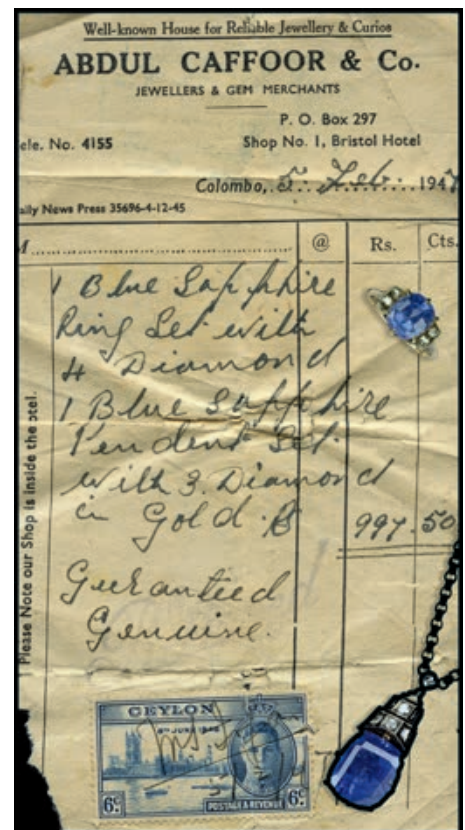 Well-known House for Reliable Jewellery & Curios
ABDUL CAFFOOR & Co.
JEWELLERS & GEM MERCHANTS
P. O. Box 297
ele. No. 4155 Shop No. 1, Bristol Hotel
Colombo, 5. Feb. 194
aily News Press 35696-4-12-45
@ Rs. Cts.
1 Blue Sapphire
Ring Set with
4 Diamond
1 Blue Sapphire
Pendent Set
with 3 Diamond
in Gold 997.50
Guranteed
Genuine.
Please Note our Shop is inside the otel.
CEYLON
8TH JUNE 1946
6c 6c
POSTAGE & REVENUE